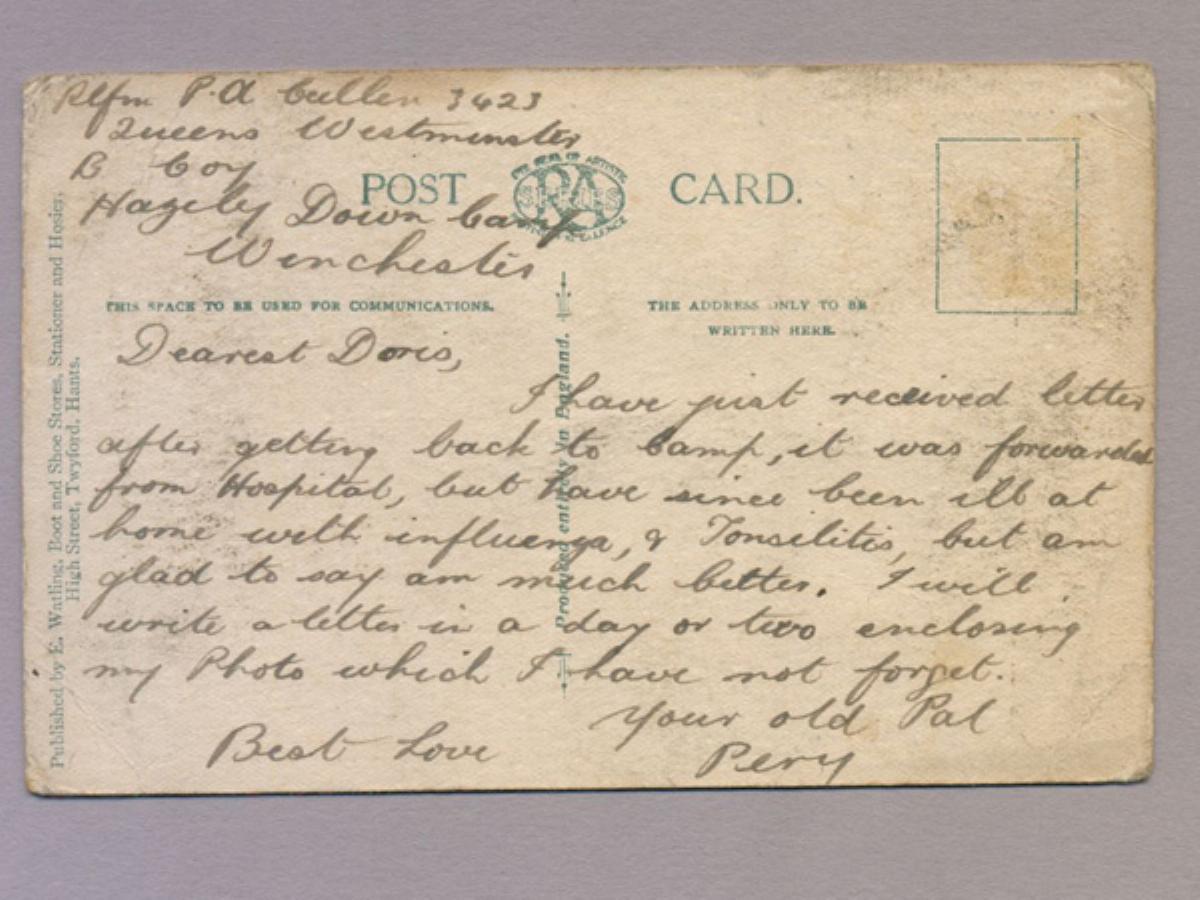 Rlfm P.A Cullen 3423
Queens Westminster
B Coy
Hazeley Down Camp
Winchester
POST CARD.
THE SEAL OF ARTISTIC
RA
SERIES
EXCELLENCE
THIS SPACE TO BE USED FOR COMMUNICATIONS.
THE ADDRESS ONLY TO BE
WRITTEN HERE.
Dearest Doris,
I have just received letter
after getting back to Camp, it was forwarded
from Hospital, but have since been ill at
home with influenza, & Tonsilitis, but am
glad to say am much better. I will
write a letter in a day or two enclosing
my Photo which I have not forget.
Your old Pal
Best Love
Percy
Published by E. Watling, Boot and Shoe Stores, Stationer and Hosier,
High Street, Twyford, Hants.
Produced entirely in England.